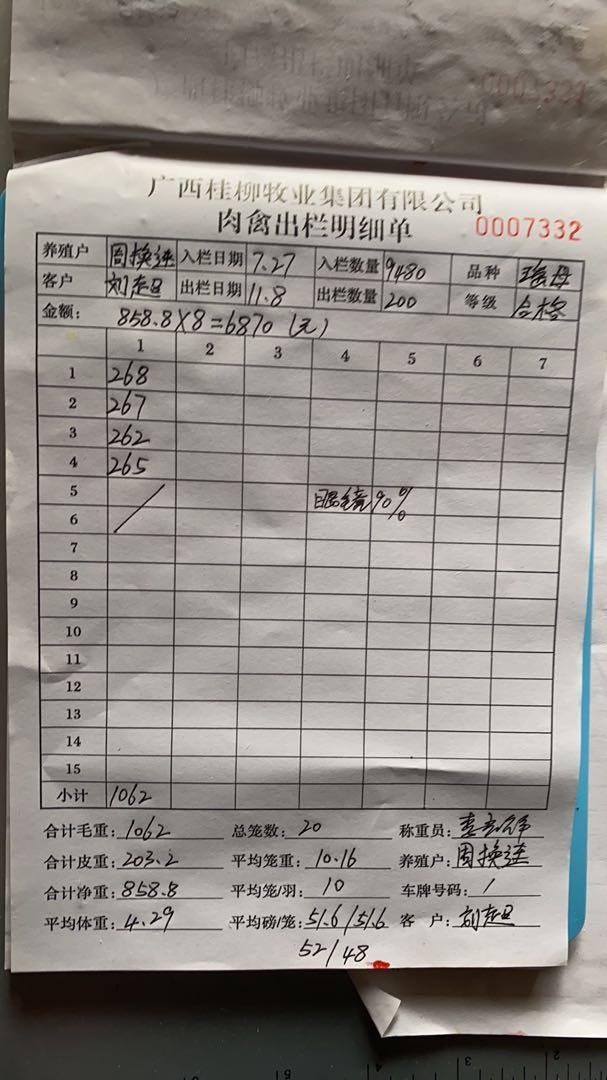 广西桂柳牧业集团有限公司
肉禽出栏明细单 0007332
养殖户 周换连 入栏日期 7.27 入栏数量 9480 品种 瑶母
客户 出栏日期 11.8 出栏数量 200 等级 合格
金额： 858.8×8=6870（元）
1 2 3 4 5 6 7
1 268
2 267
3 262
4 265
5 90%
6
7
8
9
10
11
12
13
14
15
小计 1062
合计毛重：1062 总笼数：20 称重员：
合计皮重：203.2 平均笼重：10.16 养殖户：周换连
合计净重：858.8 平均笼/羽：10 车牌号码：/
平均体重：4.29 平均磅/笼：51.6/51.6 客 户：
52/48